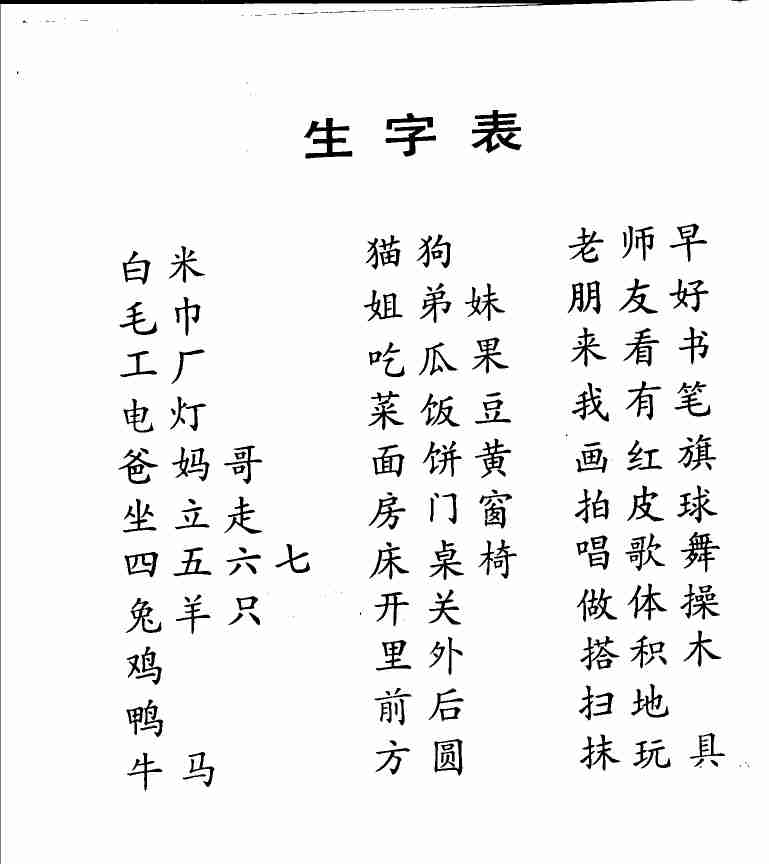 生字表
白米
毛巾
工厂
电灯
爸妈哥
坐立走
四五六七
兔羊只
鸡
鸭
牛马
猫狗
姐弟妹
吃瓜果
菜饭豆
面饼黄
房门窗
床桌椅
开关
里外
前后
方圆
老师早
朋友好
来看书
我有笔
画红旗
拍皮球
唱歌舞
做体操
搭积木
扫地
抹玩具